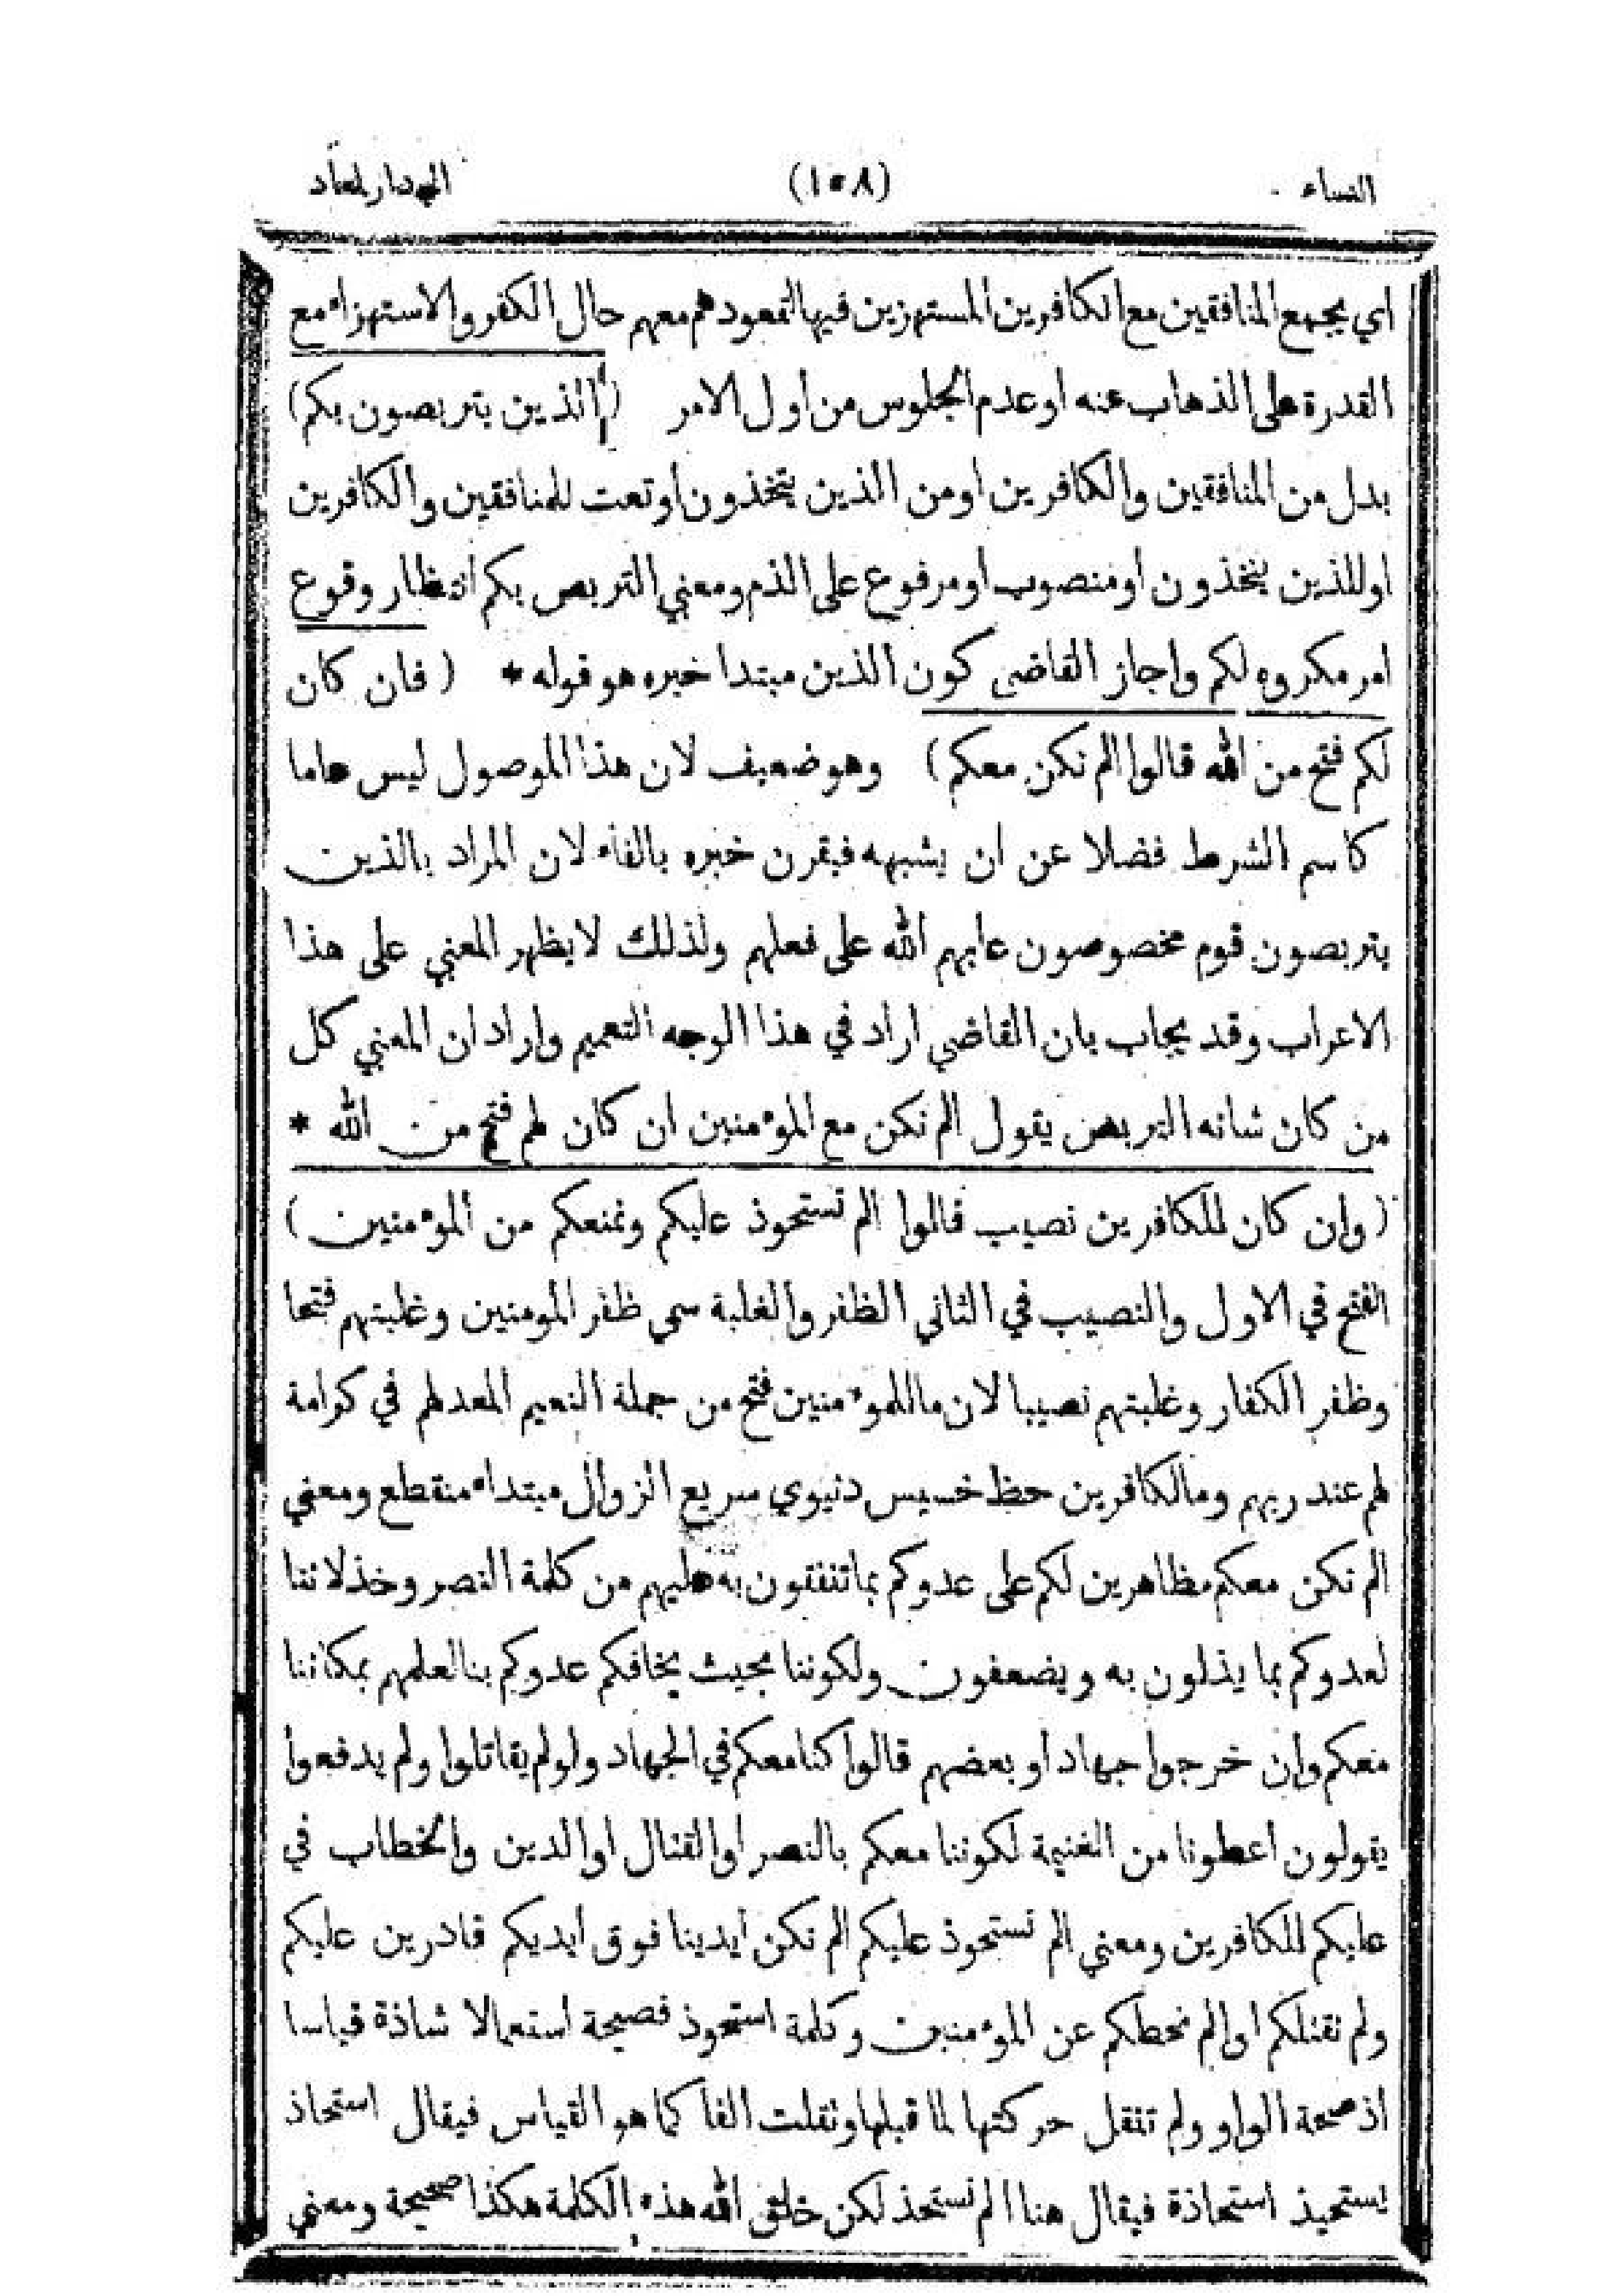 النساء
(١٠٨)
اي يجمع المنافقين مع الكافرين المستهزين فيها لقعودهم معهم حال الكفر والاستهزاء مع
القدرة على الذهاب عنه او عدم الجلوس من اول الامر (الذين يتربصون بكم)
بدل من المنافقين والكافرين او من الذين يتخذون او نعت للمنافقين والكافرين
او للذين يتخذون او منصوب او مرفوع على الذم ومعني التربص بكم انتظار وقوع
امر مكروه لكم واجاز القاضي كون الذين مبتدا خبره هو قوله * (فان كان
لكم فتح من الله قالوا الم نكن معكم) وهو ضعيف لان هذا الموصول ليس عاما
كاسم الشرط فضلا عن ان يشبهه فيقرن خبره بالفاء لان المراد بالذين
يتربصون قوم مخصوصون عابهم الله على فعلهم ولذلك لا يظهر المعني على هذا
الاعراب وقد يجاب بان القاضي اراد في هذا الوجه التعميم واراد ان المعني كل
من كان شانه التربص يقول الم نكن مع المؤمنين ان كان لهم فتح من الله *
(وان كان للكافرين نصيب قالوا الم نستحوذ عليكم ونمنعكم من المؤمنين)
الفتح في الاول والنصيب في الثاني الظفر والغلبة سمي ظفر المومنين وغلبتهم فتحا
وظفر الكفار وغلبتهم نصيبا لان ما للمؤمنين فتح من جملة النعيم المعد لهم في كرامة
لهم عند ربهم وما لكافرين حظ خسيس دنيوي سريع الزوال مبتداء منقطع ومعني
الم نكن معكم مظاهرين لكم على عدوكم بما تنفقون به عليهم من كلمة النصر وخذلاننا
لعدوكم بما يذلون به ويضعفون ولكوننا بحيث يخافكم عدوكم بنا لعلمهم بمكاننا
معكم وان خرجوا جهاد او بعضهم قالوا كنا معكم في الجهاد ولو لم يقاتلوا ولم يدفعوا
يقولون اعطونا من الغنيمة لكوننا معكم بالنصر او القتال او الدين والخطاب في
عليكم للكافرين ومعني الم نستحوذ عليكم الم نكن ايدينا فوق ايديكم قادرين عليكم
ولم نقتلكم او الم نحطكم عن المؤمنين وكلمة استحوذ فصيحة استعمالا شاذة قياسا
اذ صحة الواو ولم تنقل حركتها لما قبلها ونقلت الفا كما هو القياس فيقال استحاذ
يستحيذ استحاذة فيقال هنا الم نستحذ لكن خلق الله هذه الكلمة هكذا صحيحة ومعني